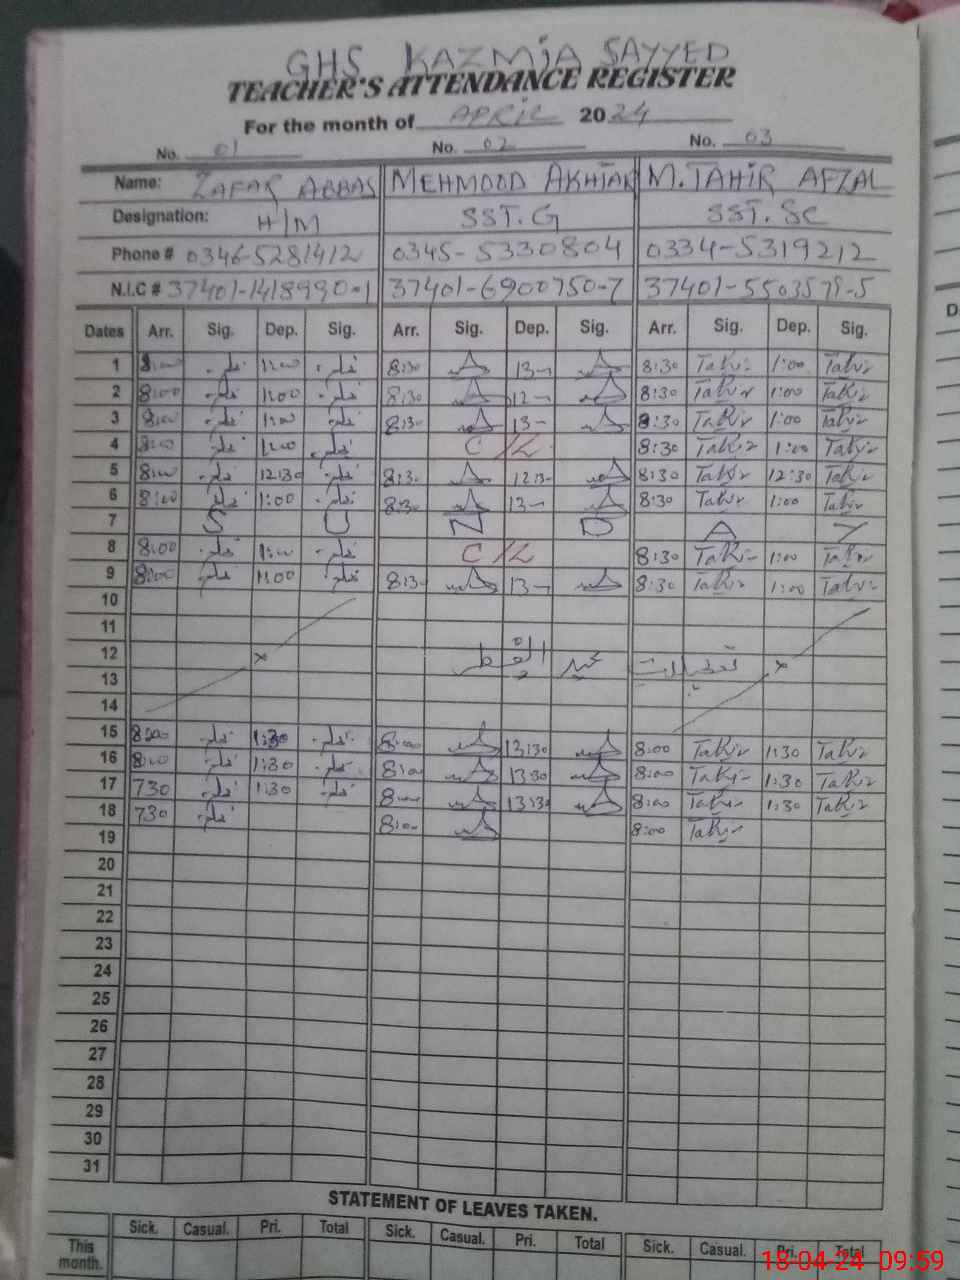 GHS KAZMIA SAYYED
TEACHER'S ATTENDANCE REGISTER
For the month of APRIL 2024
No. 01 No. 02 No. 03
Name: ZAFAR ABBAS MEHMOOD AKHTAR M. TAHIR AFZAL
Designation: H/M SST. G SST. SC
Phone # 0346-5281412 0345-5330804 0334-5319212
N.I.C # 37401-1418990-1 37401-6900750-7 37401-5503579-5
Dates Arr. Sig. Dep. Sig. Arr. Sig. Dep. Sig. Arr. Sig. Dep. Sig.
1 8:00 1:00 8:30 13- 8:30 Tahir 1:00 Tahir
2 8:00 1:00 8:30 12- 8:30 Tahir 1:00 Tahir
3 8:00 1:00 8:30 13- 8:30 Tahir 1:00 Tahir
4 8:00 1:00 C/L 8:30 Tahir 1:00 Tahir
5 8:00 12:30 8:30 12:30 8:30 Tahir 12:30 Tahir
6 8:00 1:00 8:30 13- 8:30 Tahir 1:00 Tahir
7 S U N D A Y
8 8:00 1:00 C/L 8:30 Tahir 1:00 Tahir
9 8:00 1:00 8:30 13- 8:30 Tahir 1:00 Tahir
10
11
12 عید الفطر تعطیلات
13
14
15 8:00 1:30 8:00 13:30 8:00 Tahir 1:30 Tahir
16 8:00 1:30 8:00 13:30 8:00 Tahir 1:30 Tahir
17 730 1:30 8:00 13:30 8:00 Tahir 1:30 Tahir
18 730 8:00 8:00 Tahir
19
20
21
22
23
24
25
26
27
28
29
30
31
STATEMENT OF LEAVES TAKEN.
Sick. Casual. Pri. Total Sick. Casual. Pri. Total Sick. Casual. Pri. Total
This month.
18-04-24 09:59